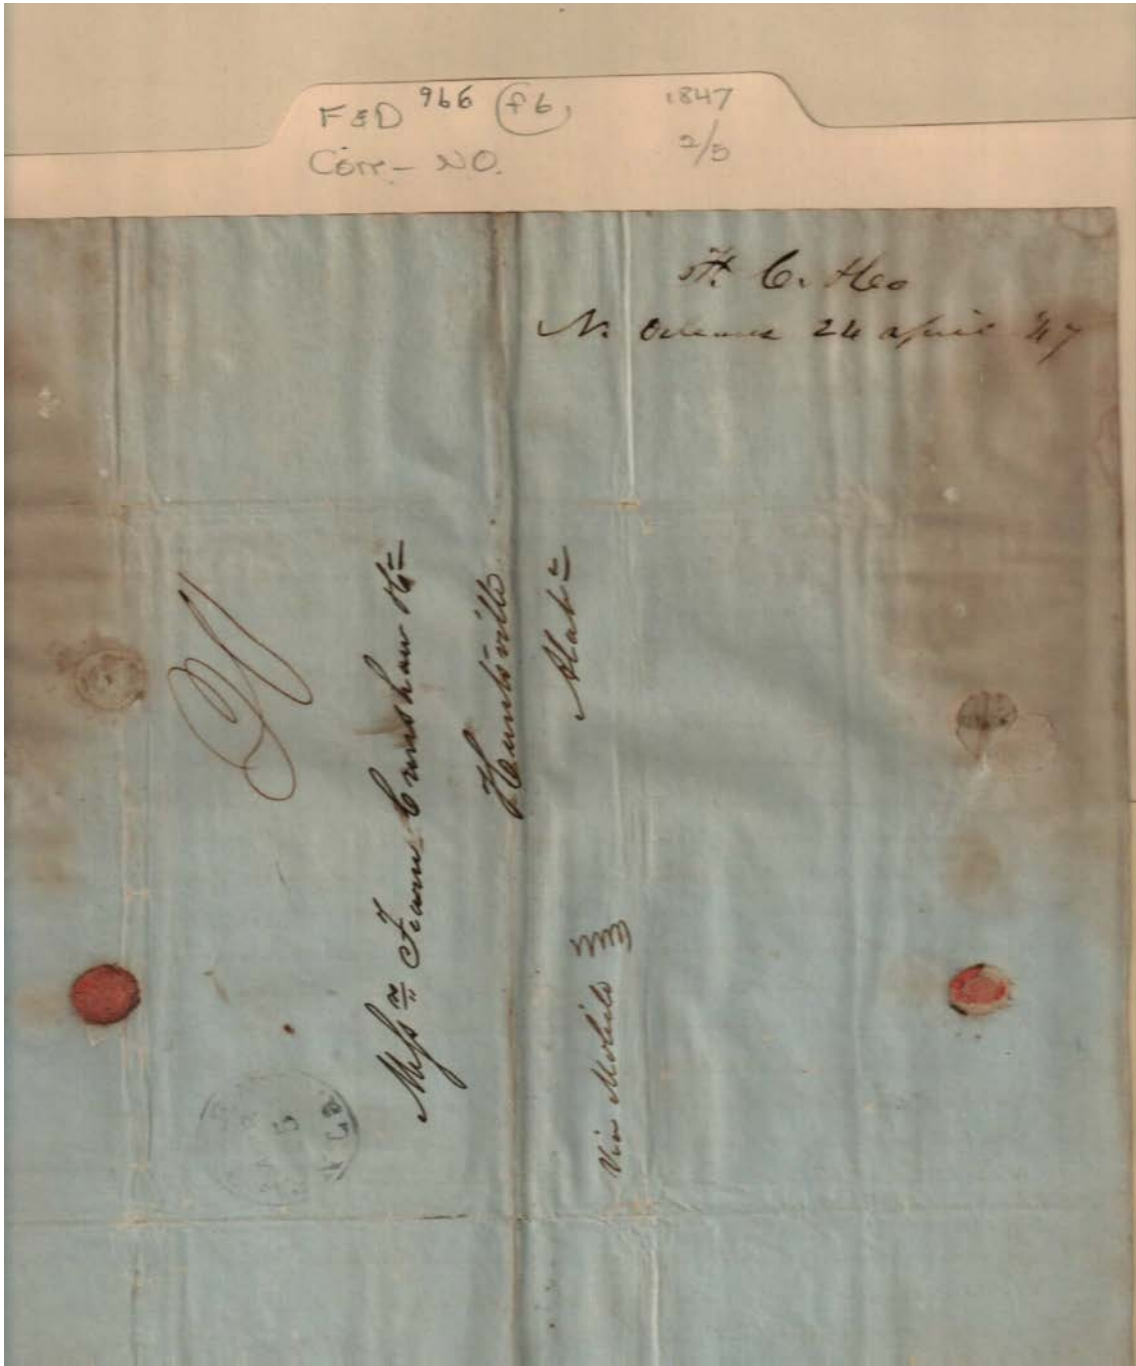 F&D 966 (f6) 1847
Corr- NO. 2/5
F. C. & Co
N. Orleans 24 april 47
Messrs Fearn Crenshaw & Co
Huntsville
Alaba
Via Mobile